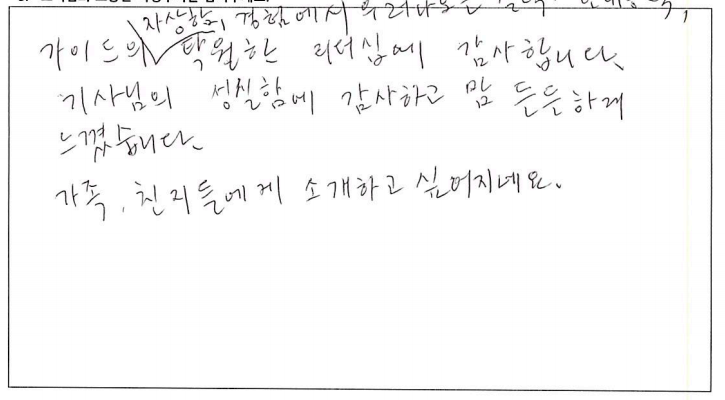 자상함, 경험에서 우러나오는
가이드의 탁월한 리더십에 감사합니다.
기사님의 성실함에 감사하고 맘 든든하게
느꼈습니다.
가족, 친지들에게 소개하고 싶어지네요.